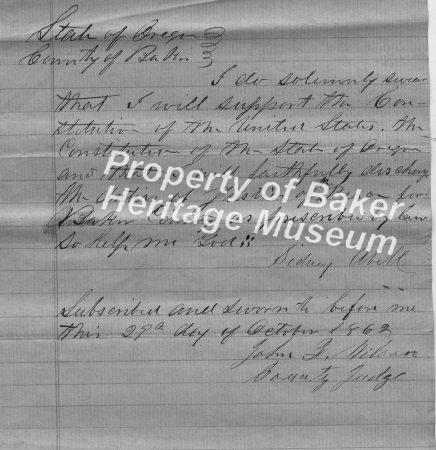 State of Oregon
County of Baker
I do solemnly swear
that I will support the Con-
stitution of the United States. the
Constitution of the State of Oregon
and that I will faithfully discharge
the duties of Justice of Peace for
Baker County as prescribed by law
So help me God
Sidney Abell
Subscribed and sworn to before me
this 29th day of October 1862
John F. Wilson
County Judge
Property of Baker
Heritage Museum